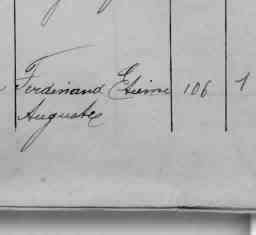 Ferdinand Etienne 106 1
Auguste